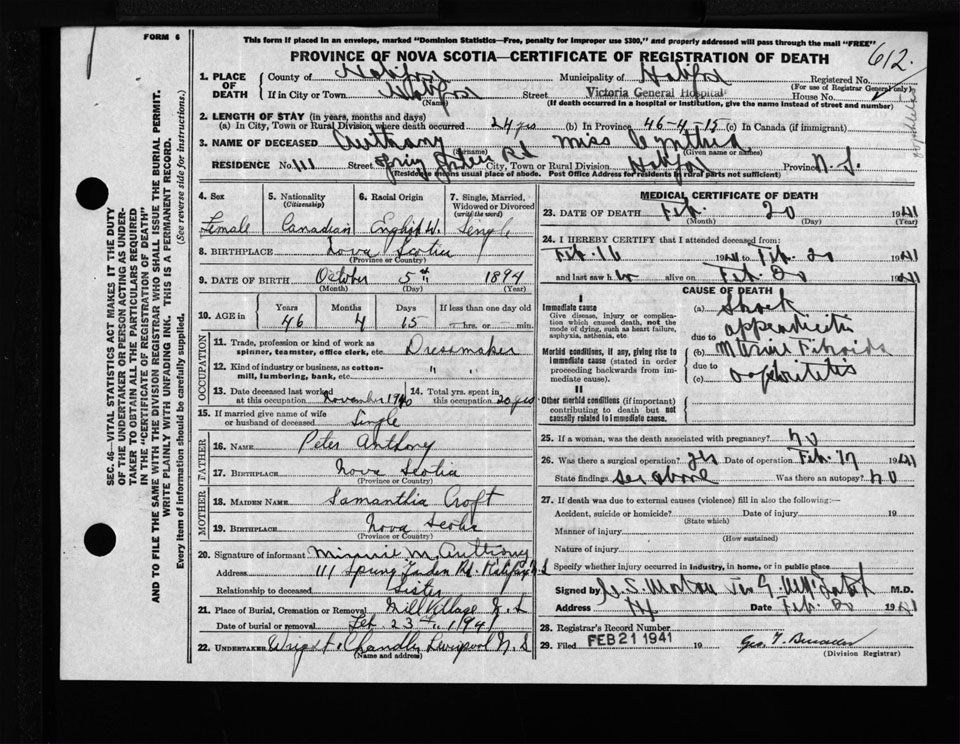 FORM 6
This form if placed in an envelope, marked "Dominion Statistics—Free, penalty for improper use $300," and properly addressed will pass through the mail "FREE"
PROVINCE OF NOVA SCOTIA—CERTIFICATE OF REGISTRATION OF DEATH
612.
1. PLACE OF DEATH
County of Halifax Municipality of Halifax Registered No.
(For use of Registrar General only)
If in City or Town Halifax Street Victoria General Hospital House No.
(Name) (If death occurred in a hospital or institution, give the name instead of street and number)
2. LENGTH OF STAY (in years, months and days)
(a) In City, Town or Rural Division where death occurred 24 yrs (b) In Province 46-4-15 (c) In Canada (if immigrant)
3. NAME OF DECEASED Anthony Miss Cynthia
(Surname) (Given name or names)
RESIDENCE No. 111 Street Spring Garden Rd City, Town or Rural Division Halifax Province N.S.
(Residence means usual place of abode. Post Office Address for residents in rural parts not sufficient)
4. Sex Female
5. Nationality (Citizenship) Canadian
6. Racial Origin English W.
7. Single, Married, Widowed or Divorced (write the word) Single
8. BIRTHPLACE Nova Scotia
(Province or Country)
9. DATE OF BIRTH October 5th 1894
(Month) (Day) (Year)
10. AGE in Years 46 Months 4 Days 15 If less than one day old —hrs. or —min.
OCCUPATION
11. Trade, profession or kind of work as spinner, teamster, office clerk, etc. Dressmaker
12. Kind of industry or business, as cotton-mill, lumbering, bank, etc. " "
13. Date deceased last worked at this occupation November 1940
14. Total yrs. spent in this occupation 20 yrs
15. If married give name of wife or husband of deceased Single
FATHER
16. NAME Peter Anthony
17. BIRTHPLACE Nova Scotia
(Province or Country)
MOTHER
18. MAIDEN NAME Samantha Croft
19. BIRTHPLACE Nova Scotia
(Province or Country)
20. Signature of informant Minnie M. Anthony
Address 111 Spring Garden Rd. Halifax N.S
Relationship to deceased Sister
21. Place of Burial, Cremation or Removal Mill Village N.S
Date of burial or removal Feb. 23rd 1941
22. UNDERTAKER Wright & Chandler Liverpool N.S
(Name and address)
MEDICAL CERTIFICATE OF DEATH
23. DATE OF DEATH Feb. 20 1941
(Month) (Day) (Year)
24. I HEREBY CERTIFY that I attended deceased from:
Feb. 16 1941 to Feb. 20 1941
and last saw her alive on Feb. 20 1941
CAUSE OF DEATH
I
Immediate cause
Give disease, injury or complication which caused death, not the mode of dying, such as heart failure, asphyxia, asthenia, etc.
(a) Shock
due to appendicitis
Morbid conditions, if any, giving rise to immediate cause (stated in order proceeding backwards from immediate cause).
(b) Uterine Fibroids
due to
(c)
II
Other morbid conditions (if important) contributing to death but not causally related to immediate cause.
25. If a woman, was the death associated with pregnancy? No
26. Was there a surgical operation? yes Date of operation Feb. 17 1941
State findings see above Was there an autopsy? No
27. If death was due to external causes (violence) fill in also the following:—
Accident, suicide or homicide? Date of injury 19
(State which)
Manner of injury
(How sustained)
Nature of injury
Specify whether injury occurred in industry, in home, or in public place
Signed by M.D.
Address Date Feb. 20 1941
28. Registrar's Record Number
29. Filed FEB 21 1941 19
(Division Registrar)
SEC. 46—VITAL STATISTICS ACT MAKES IT THE DUTY
OF THE UNDERTAKER OR PERSON ACTING AS UNDERTAKER TO OBTAIN ALL THE PARTICULARS REQUIRED
IN THE "CERTIFICATE OF REGISTRATION OF DEATH"
AND TO FILE THE SAME WITH THE DIVISION REGISTRAR WHO SHALL ISSUE THE BURIAL PERMIT.
WRITE PLAINLY WITH UNFADING INK. THIS IS A PERMANENT RECORD.
Every item of information should be carefully supplied. (See reverse side for instructions).